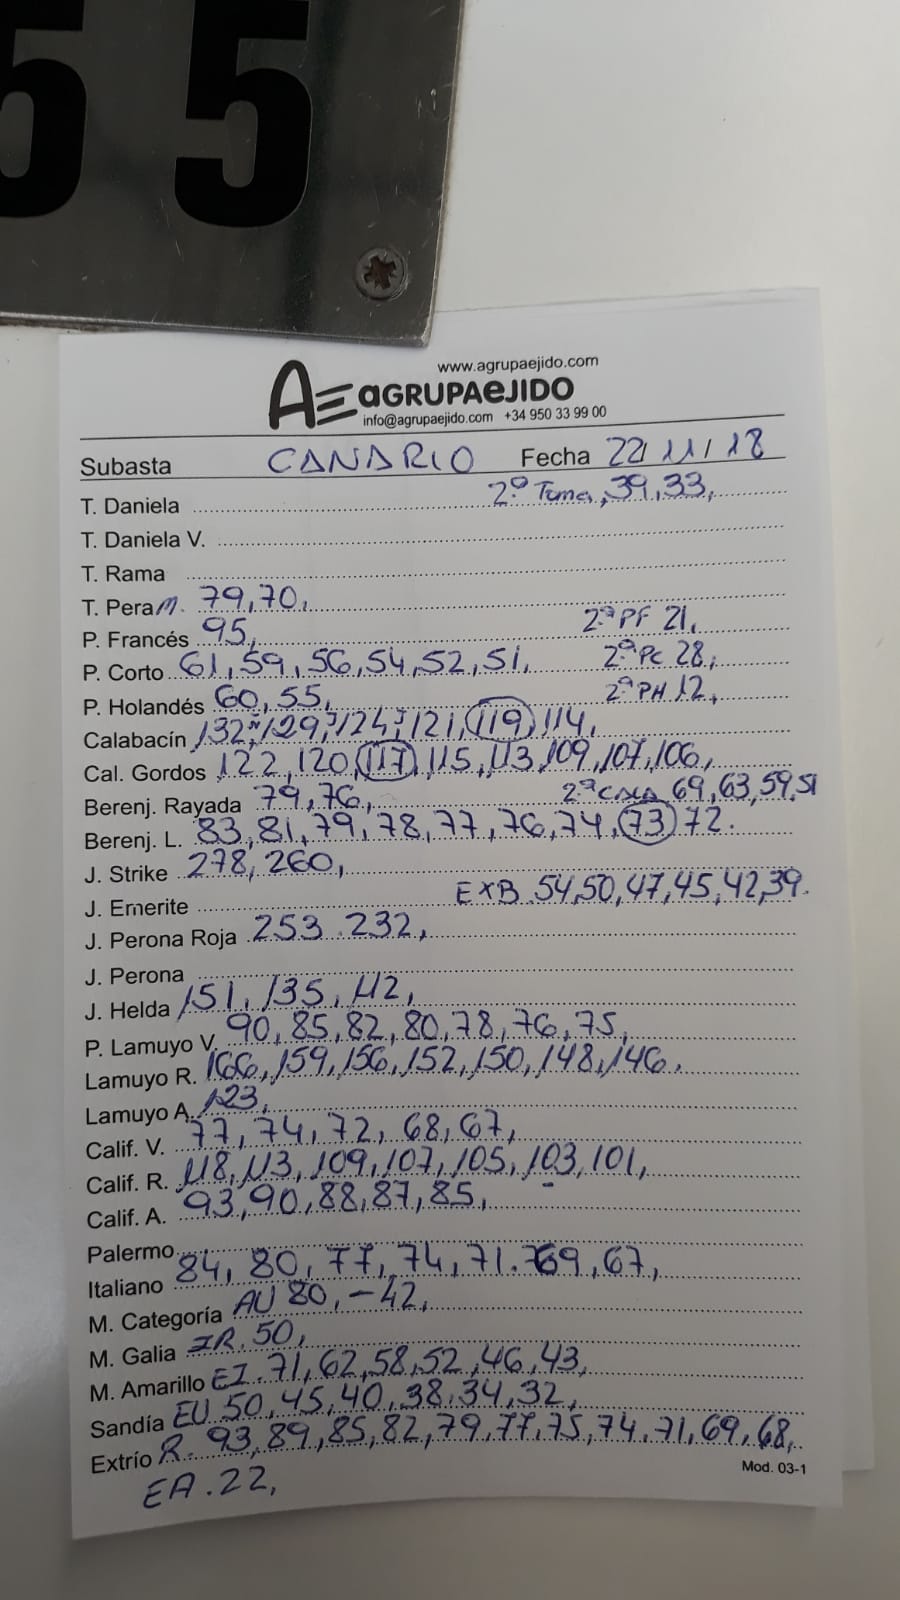 55
www.agrupaejido.com
AE aGRUPAeJIDO
info@agrupaejido.com +34 950 33 99 00
Subasta CANARIO Fecha 22/11/18
T. Daniela 2º Toma, 39, 33,
T. Daniela V.
T. Rama
T. Pera M. 79, 70,
P. Francés 95, 2ª PF 21,
P. Corto 61, 59, 56, 54, 52, 51, 2ª PC 28,
P. Holandés 60, 55, 2ª PH 12,
Calabacín 132, 129, 124, 121, 119, 114,
Cal. Gordos 122, 120, 117, 115, 113, 109, 107, 106,
Berenj. Rayada 79, 76, 2ª 69, 63, 59, 51
Berenj. L. 83, 81, 79, 78, 77, 76, 74, 73 72.
J. Strike 278, 260,
J. Emerite EXB. 54, 50, 47, 45, 42, 39.
J. Perona Roja 253. 232,
J. Perona
J. Helda 151, 135, 112,
P. Lamuyo V. 90, 85, 82, 80, 78, 76, 75,
Lamuyo R. 166, 159, 156, 152, 150, 148, 146,
Lamuyo A. 123,
Calif. V. 77, 74, 72, 68, 67,
Calif. R. 118, 113, 109, 107, 105, 103, 101,
Calif. A. 93, 90, 88, 87, 85,
Palermo
Italiano 84, 80, 77, 74, 71. 69, 67,
M. Categoría AU 80, -42,
M. Galia IR. 50,
M. Amarillo EI. 71, 62, 58, 52, 46, 43,
Sandía EU 50, 45, 40, 38, 34, 32,
Extrío R. 93, 89, 85, 82, 79, 77, 75, 74, 71, 69, 68,
Mod. 03-1
EA. 22,